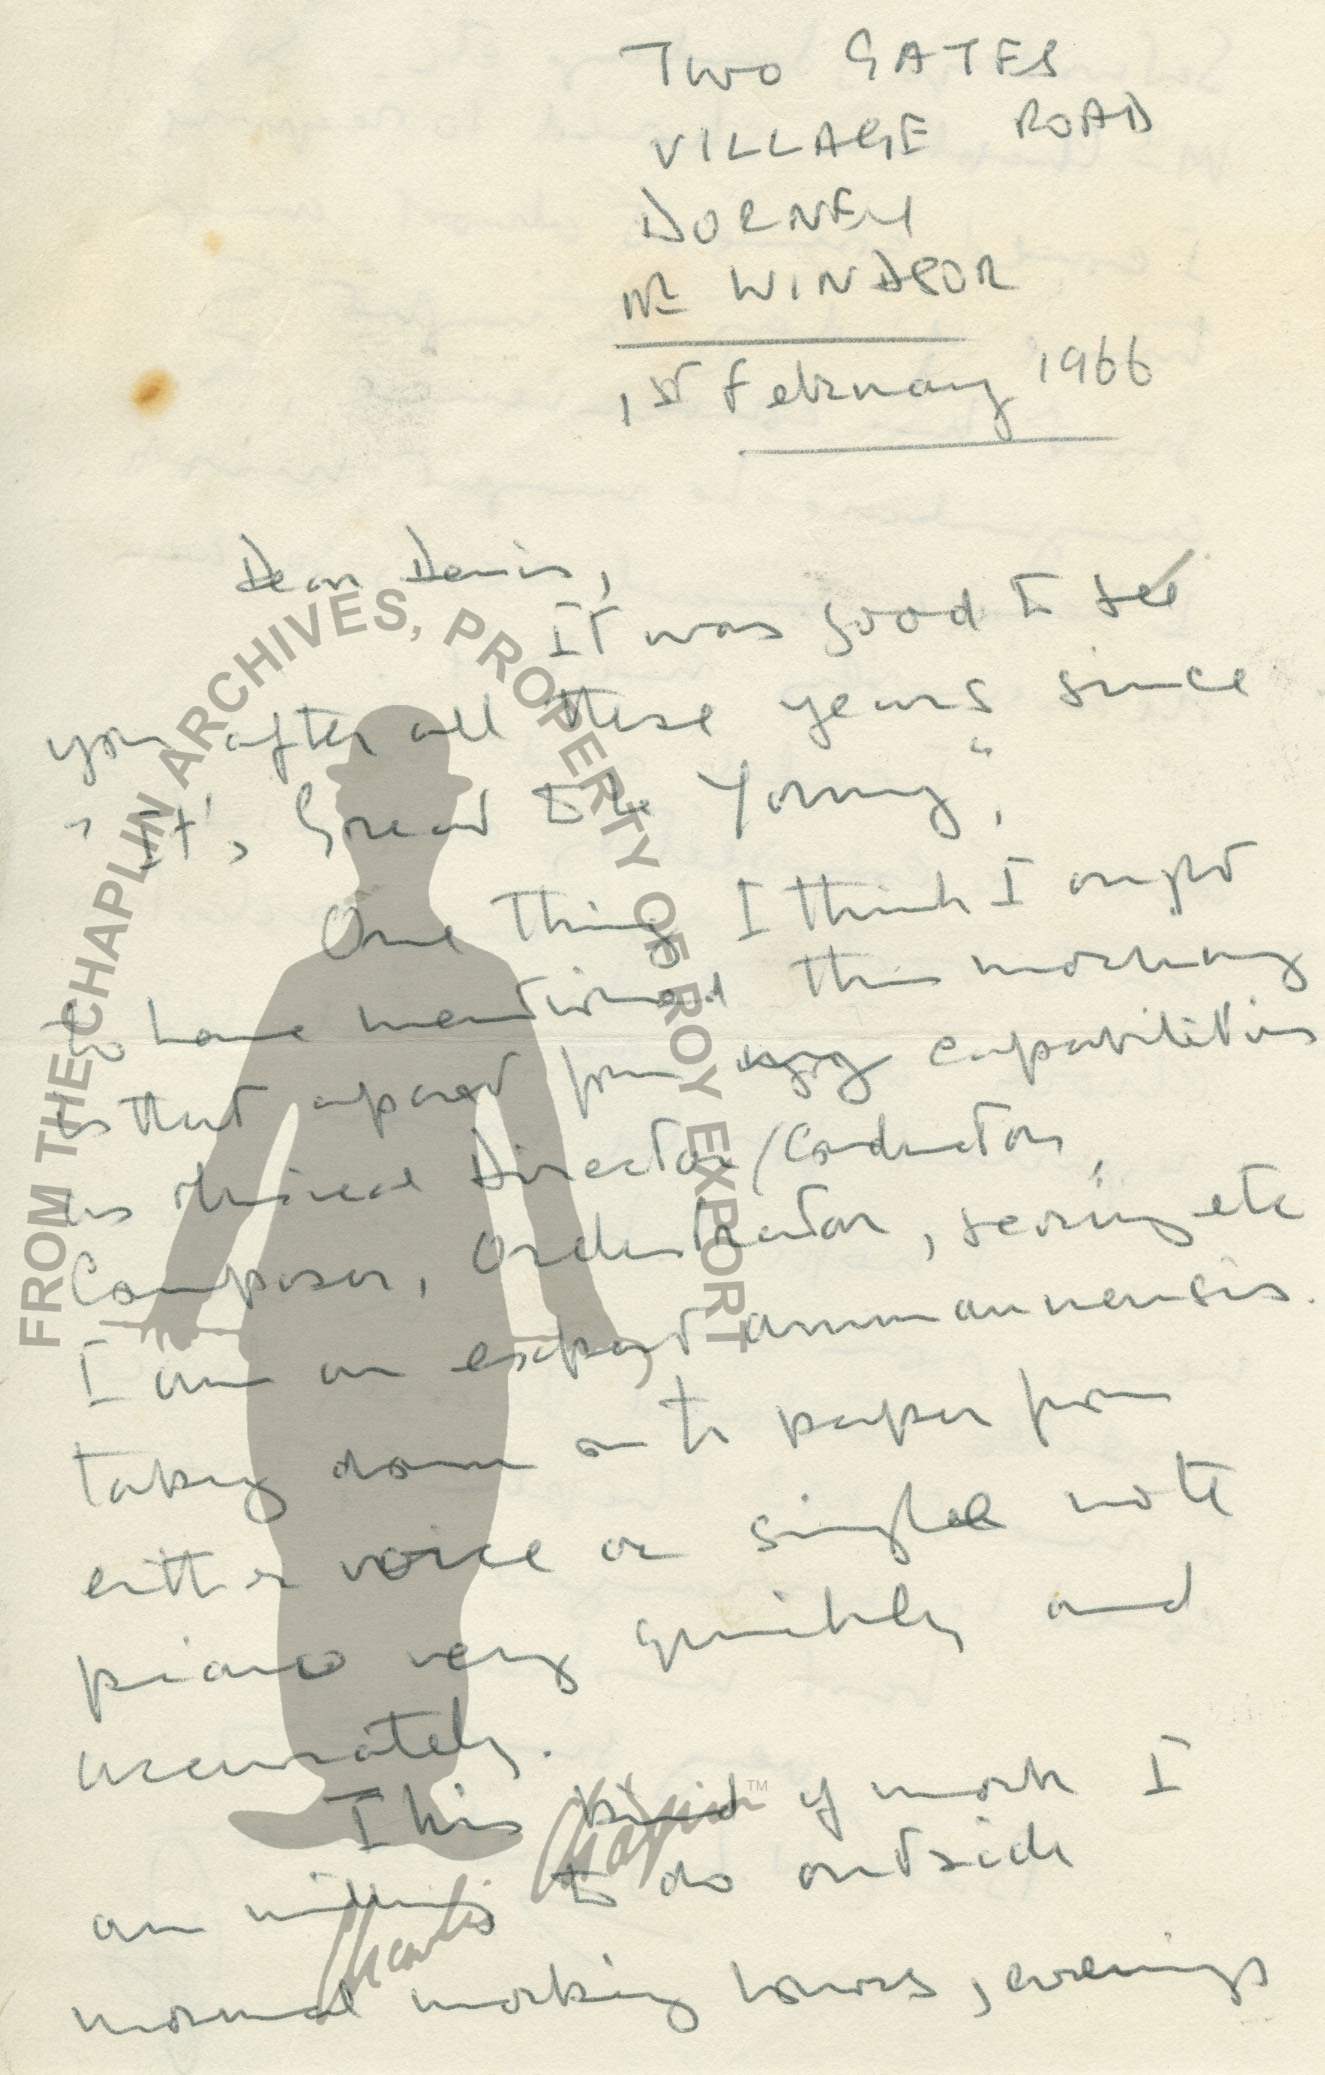 TWO GATES
VILLAGE ROAD
DORNEY
NR WINDSOR
1ST February 1966
Dear Denis,
It was good to see
you after all these years since
"It's Great to be Young".
One thing I think I ought
to have mentioned this morning
is that apart from my capabilities
as Musical Director/Conductor,
Composer, Orchestrator, scoring etc
I am an expert ammanuensis.
taking down on to paper from
either voice or single note
piano very quickly and
accurately.
This kind of work I
am willing to do outside
normal working hours, evenings
FROM THE CHAPLIN ARCHIVES, PROPERTY OF ROY EXPORT
Charlie Chaplin TM